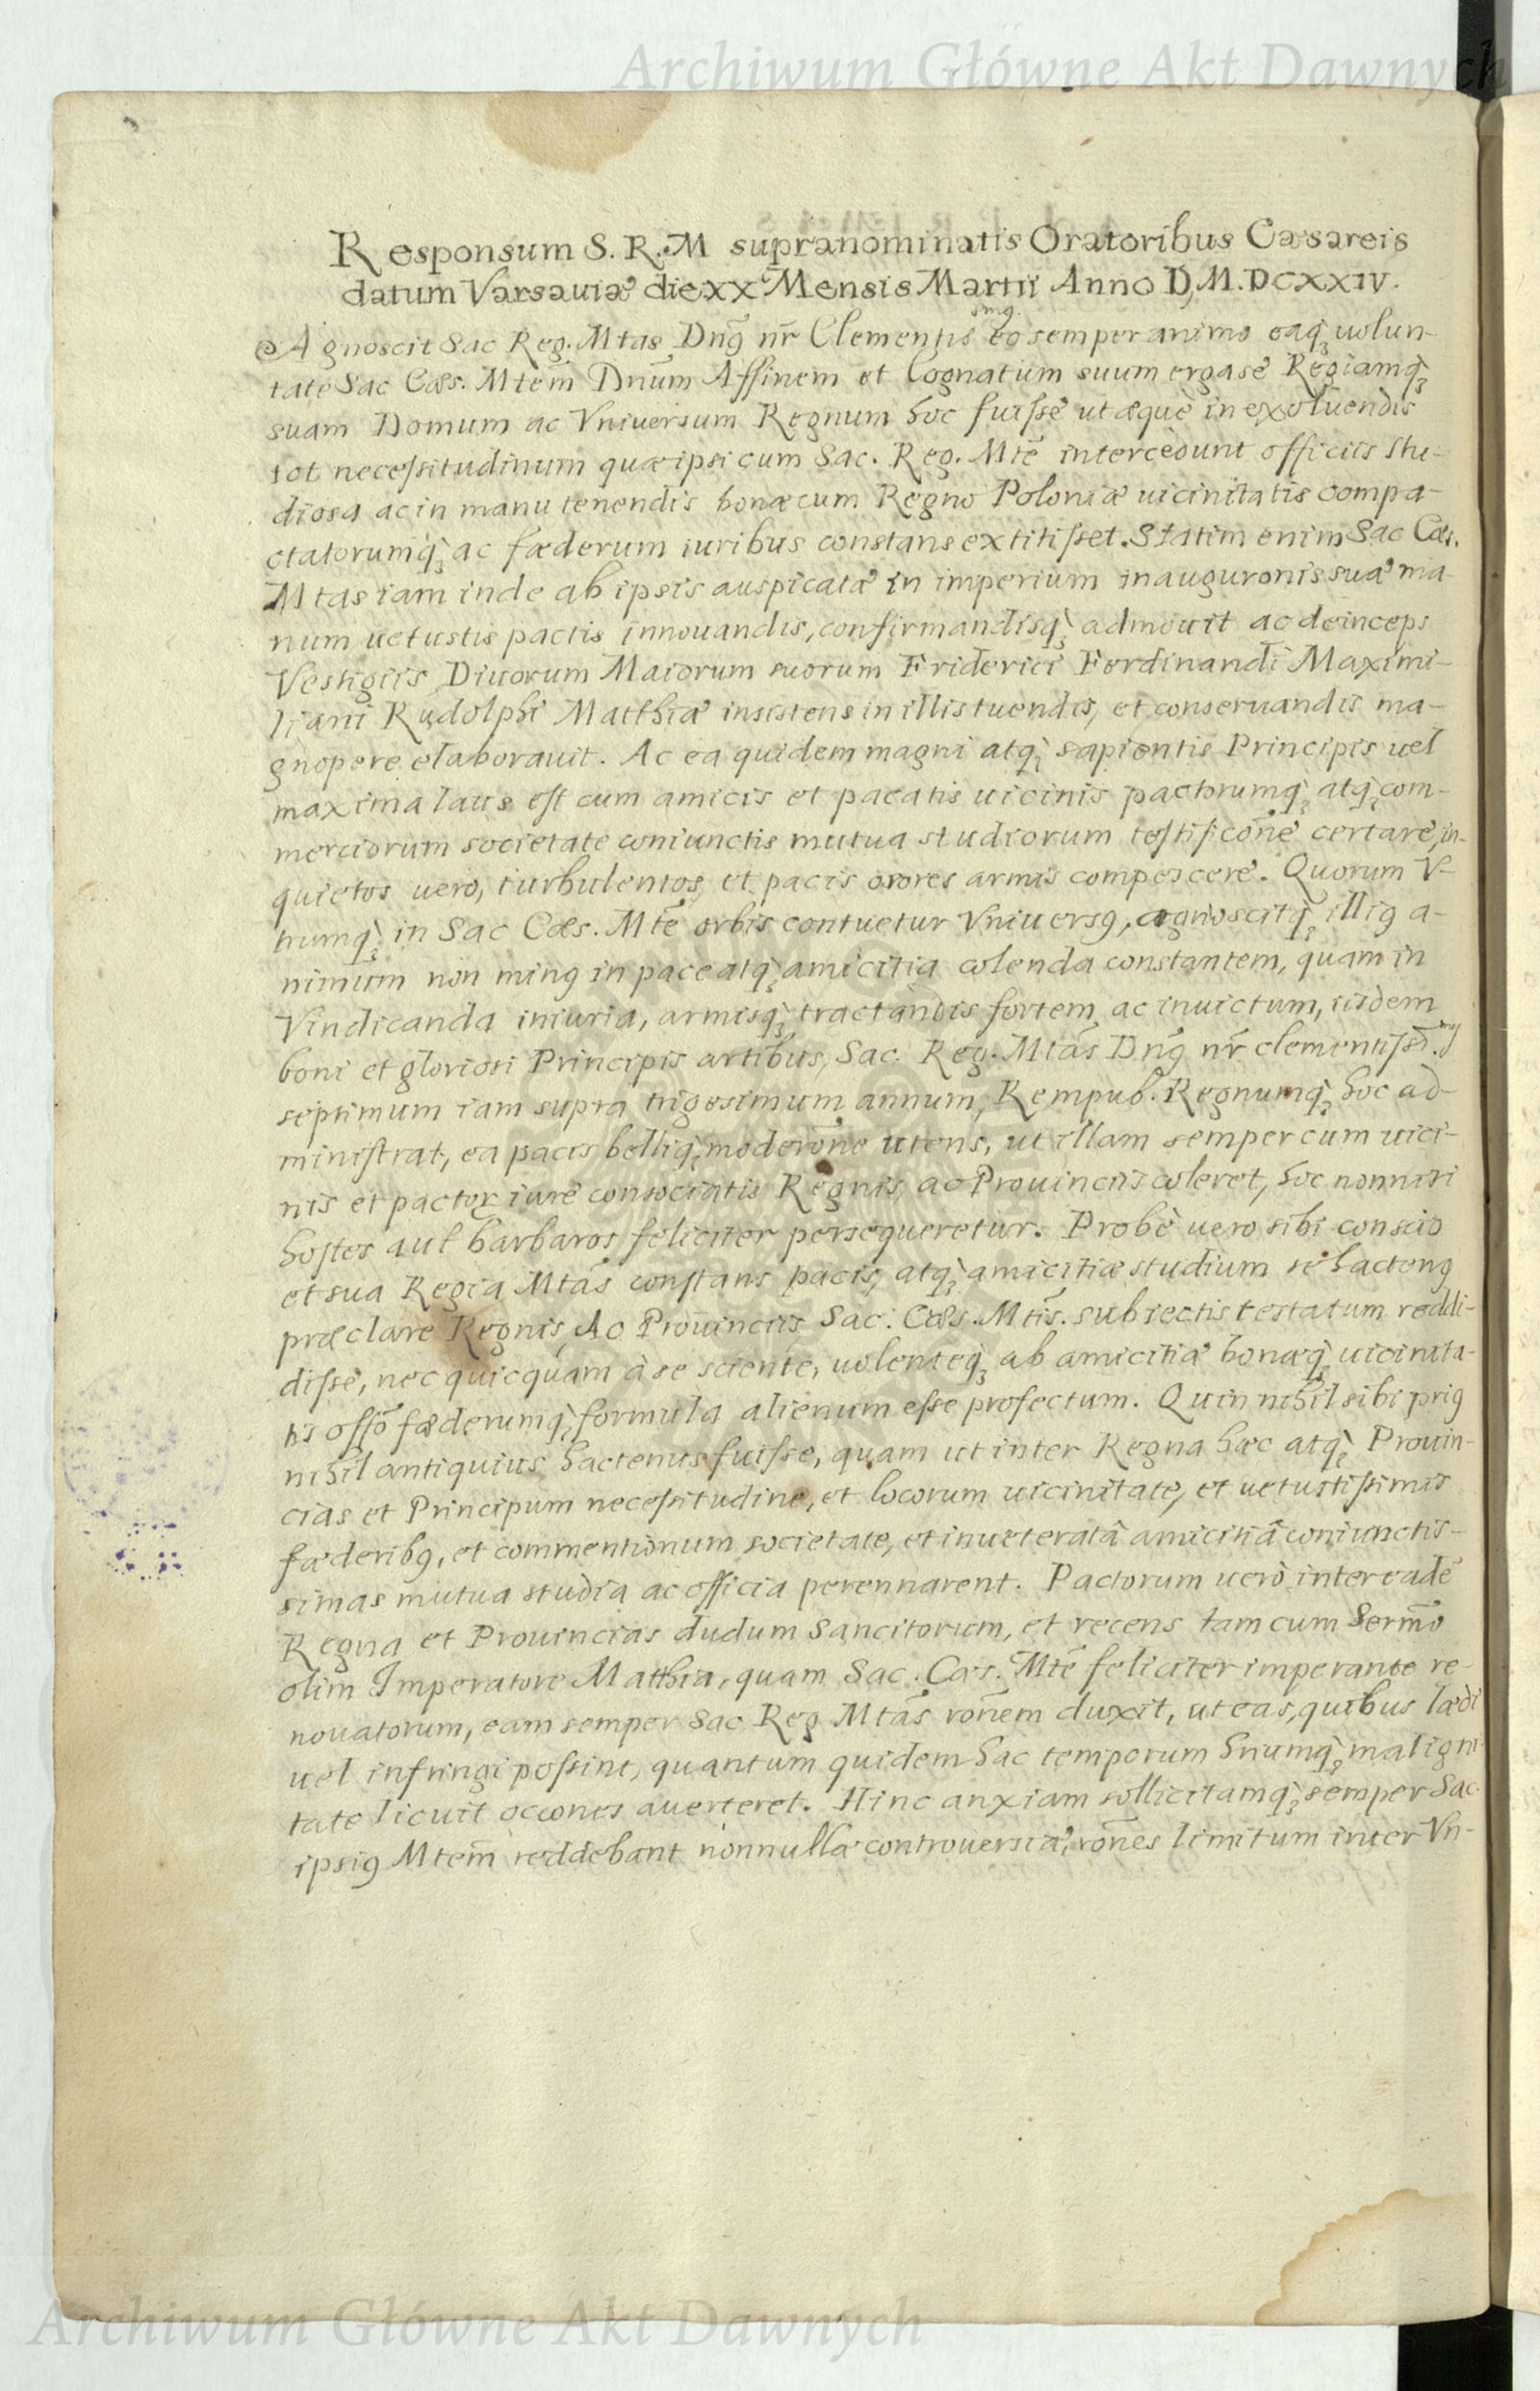 Archiwum Główne Akt Dawnych
Responsum S. R. M supranominatis Oratoribus Cæsareis
datum Varsauiæ die XX Mensis Martii Anno D, M.DCXXIV.
simꝯ.
Agnoscit Sac Reg. Mtas Dnꝯ nr̄ Clementis eo semper animo eaq̨ uolun-
tate Sac Cæs. Mtem̄ Dnūm Affinem et Cognatum suum erga se Regiamq̨
suam Domum ac Vniuersum Regnum hoc fuisse ut æque in exoluendis
tot necessitudinum quæ ipsi cum Sac. Reg. Mtē intercedunt officiis stu-
diosa ac in manu tenendis bonæ cum Regno Poloniæ uicinitatis compa-
ctatorumq̨ ac fæderum iuribus constans extitisset. Statim enim Sac Cæs.
Mtas iam inde ab ipsis auspicatæ in imperium inauguronis suæ ma-
num uetustis pactis innouandis, confirmandisq̨ admouit ac deinceps
Vestigiis Diuorum Maiorum suorum Friderici Ferdinandi Maximi-
liani Rudolphi Matthiæ insistens in illis tuendis, et conseruandis ma-
gnopere elaborauit. Ac ea quidem magni atq̨ sapientis Principis uel
maxima laus est cum amicis et pacatis uicinis pactorumq̨ atq̨ com-
merciorum societate coniunctis mutua studiorum testificōne certare, in-
quietos uero, turbulentos, et pacis osores armis compescere. Quorum V-
trumq̨ in Sac Cæs. Mtē orbis contuetur Vniuersꝯ, agnoscitq̨ illiꝯ a-
nimum non minꝯ in pace atq̨ amicitia colenda constantem, quam in
Vindicanda iniuria, armisq̨ tractandis fortem ac inuictum, iisdem
boni et gloriosi Principis artibus, Sac. Reg. Mtās Dnꝯ nr̄ clementissī.mꝯ
septimum iam supra trigesimum annum, Rempub. Regnumq̨ hoc ad-
ministrat, ea pacis belliq̨ moderōne utens, ut illam semper cum uici-
nis et pactoꝝ iure consociatis Regnis, ac Prouinciis coleret, hoc nonnisi
hostes aut barbaros feliciter persequeretur. Probè uero sibi conscio
et sua Regia Mtās constans pacis, atq̨ amicitiæ studium se hactenꝯ
præclare Regnis, Ac Prouinciis Sac. Cæs. Mtis. subiectis testatum reddi-
disse, nec quicquam à se sciente, uolenteq̨ ab amicitiæ bonæq̨ uicinita-
tis offō fæderumq̨ formula alienum esse profectum. Quin nihil sibi priꝯ
nihil antiquius hactenus fuisse, quam ut inter Regna hæc atq̨ Prouin-
cias et Principum necessitudine, et locorum uicinitate, et uetustissimis
fæderibꝯ, et commentionum societate, et inueteratâ amicitiâ coniunctis-
simas mutua studia ac officia perennarent. Pactorum uerò inter eadē
Regna et Prouincias dudum sancitorum, et recens tam cum Serm̄o
olim Imperatore Matthia, quam Sac. Cæs. Mtē feliciter imperante re-
nouatorum, eam semper Sac Reg Mtās ronēm duxit, ut eas, quibus lædi
uel infringi possint, quantum quidem hac temporum hriumq̨ maligni-
tate licuit occones auerteret. Hinc anxiam sollicitamq̨ semper Sac.
ipsiꝯ Mtem̄ reddebant nonnullæ controuersiæ, rōnes limitum inter Vn-
Archiwum Główne Akt Dawnych